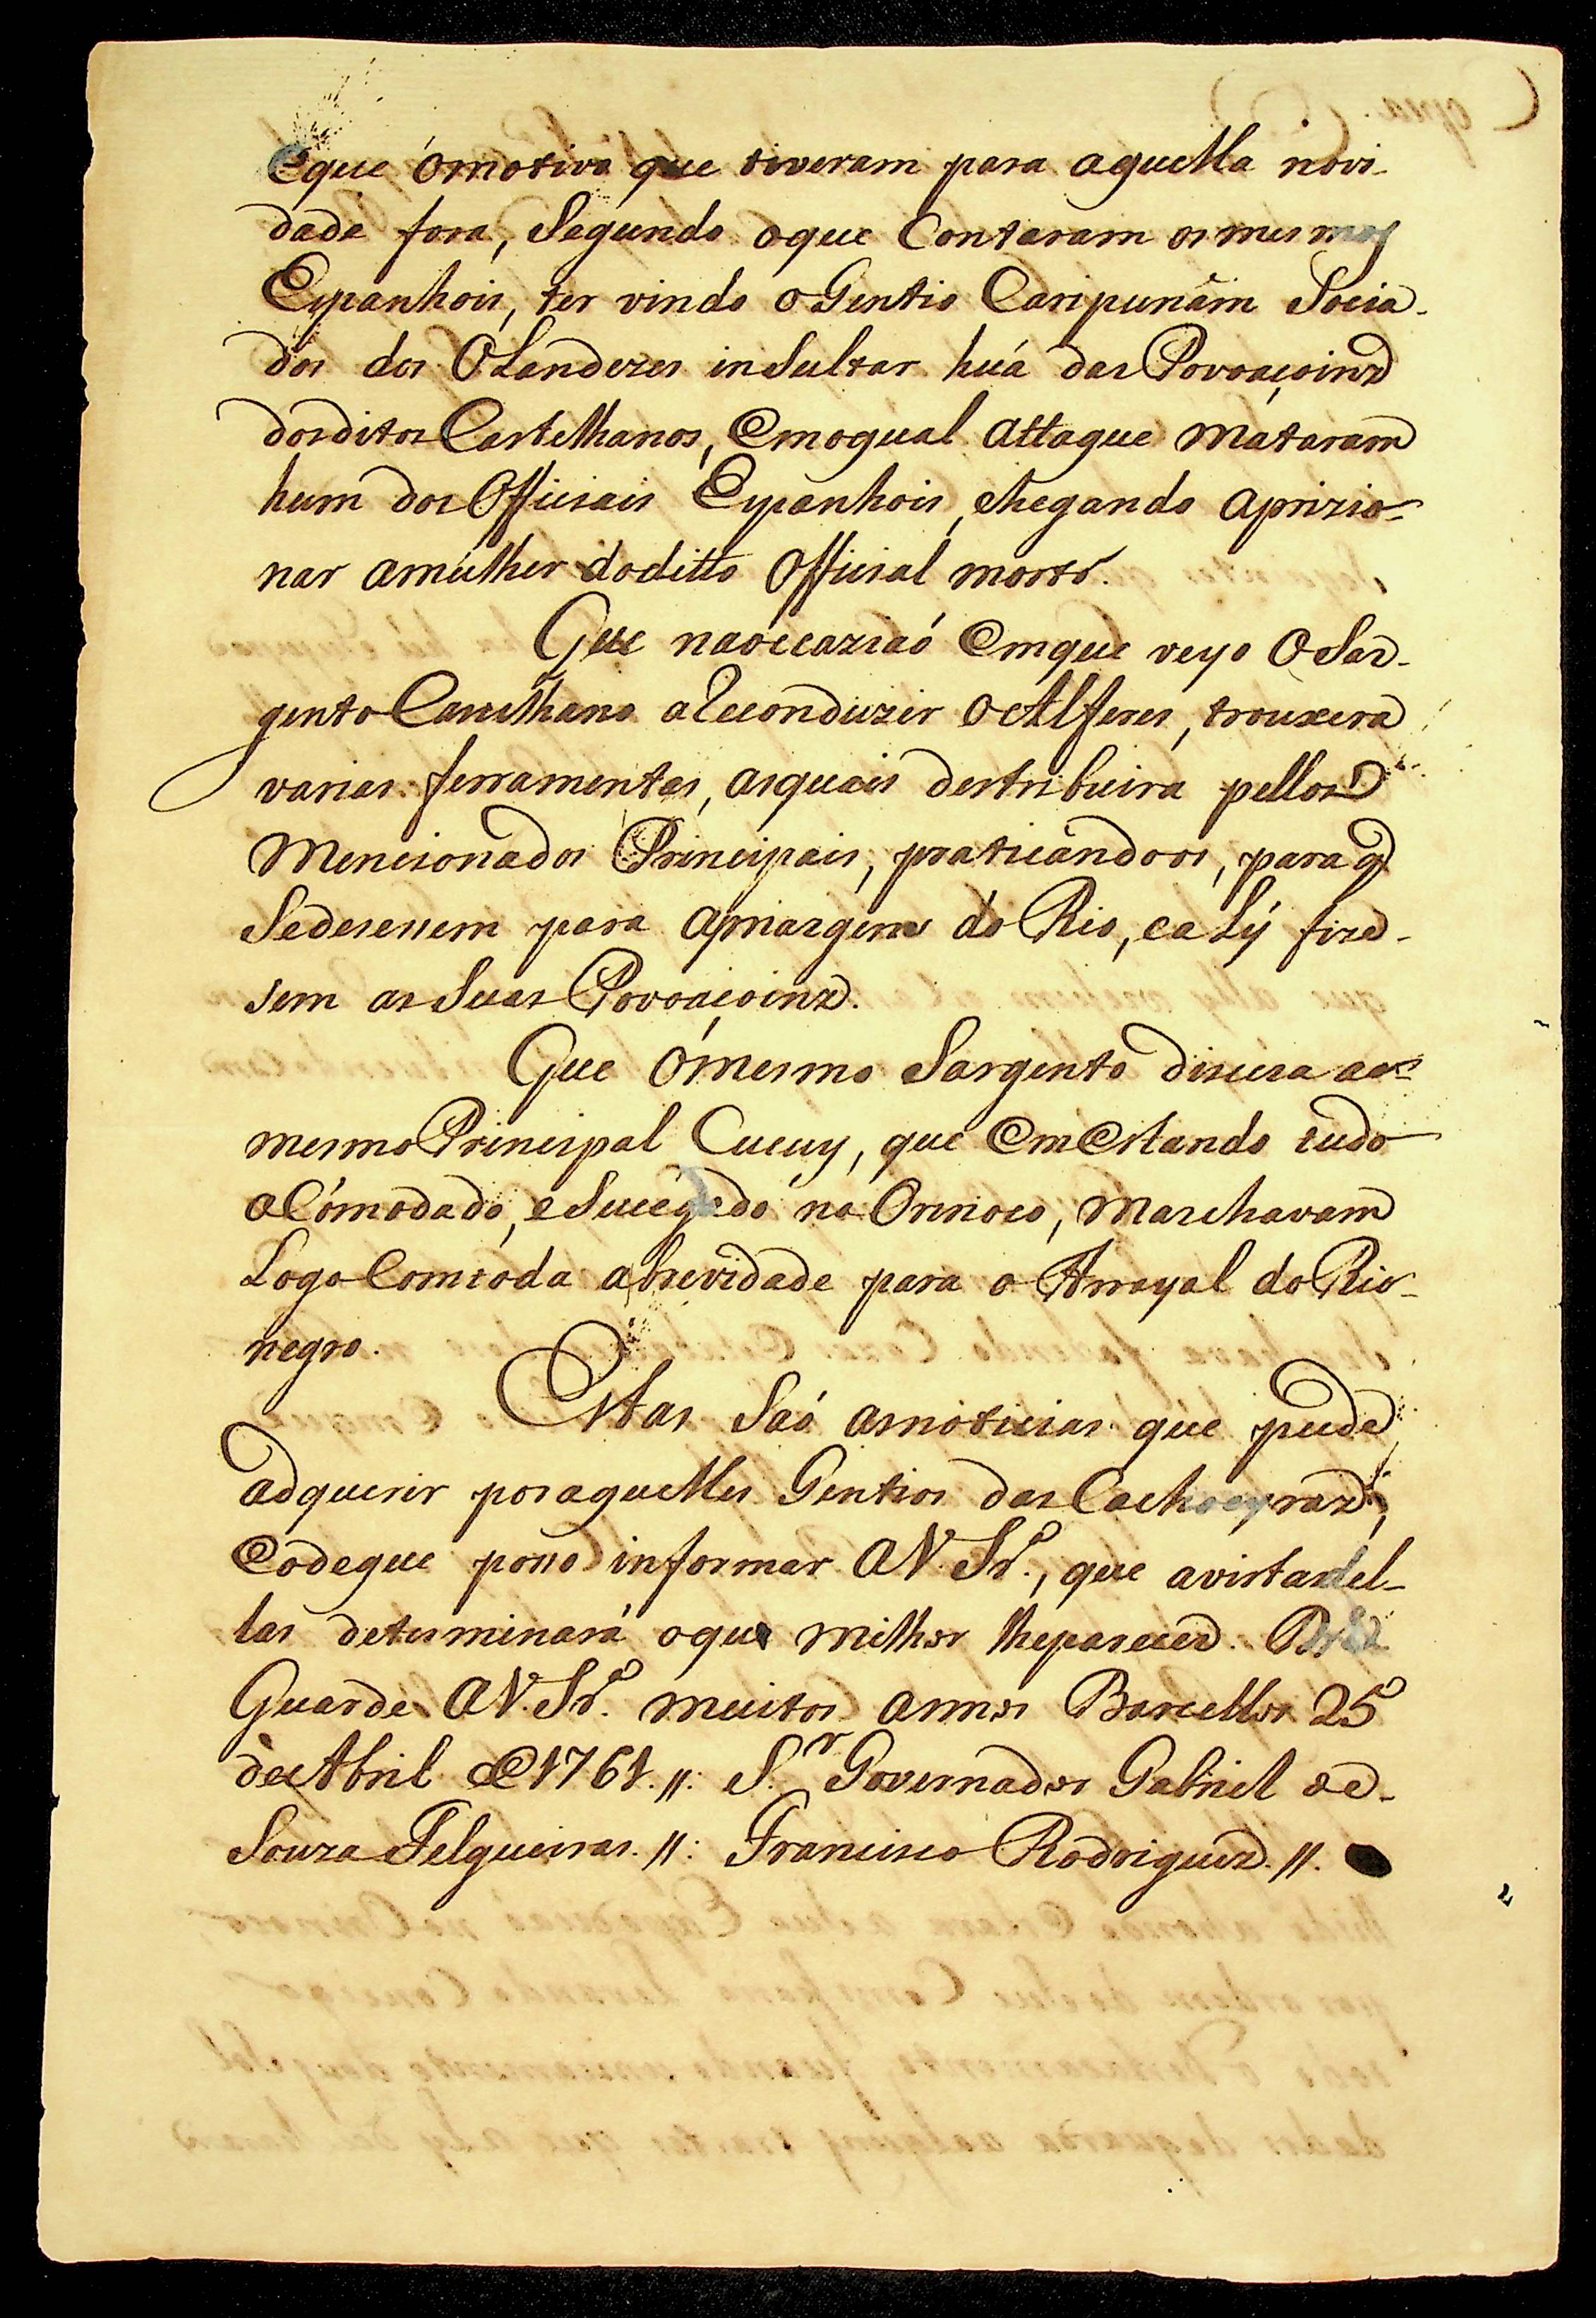 Eque ómotivo que tiveram para aquella novi-
dade fora, Segundo oque Contaram os mesmos
Espanhois, ter vindo oGentio Caripunâm Socia-
dos dos OLandezes inSultar huá das Povoaçoins
dosditos Castelhanos, Emoqual attaque Mataram
hum dos Officiais Espanhois, chegando aprizio-
nar amulher doditto Official morto.
Que naóccaziaó Emque veyo OSar-
gento Castelhano aReconduzir oAlferes, trouxera
varias ferramentas, asquais destribuira pellos
Mencionados Principais, praticándoos, para q
Sedesessem para amargem do Rio, ealý fize-
sem as Suas Povoaçoins.
Que ómesmo Sargento dissera ao
mesmo Principal Cucuy, que EmEstando tudo
aCómodado, eSucegado no Orinoco, Marchavam
Logo Comtoda abrevidade para o Arrayal do Rio
negro.
Estas Saó asnoticias que pude
adquerir poraquelles Gentios das Cachoeyras,
Eodeque posso informar aV. Sr.ª, que avistadel-
las determinará oque milhor lheparecer. D.s
Guarde aV. Sr.ª muitos annos Barcellos 25
deAbril de1761.//: S.r Governador Gabriel de
Souza Felgueiras.//: Francisco Rodrigues.//.